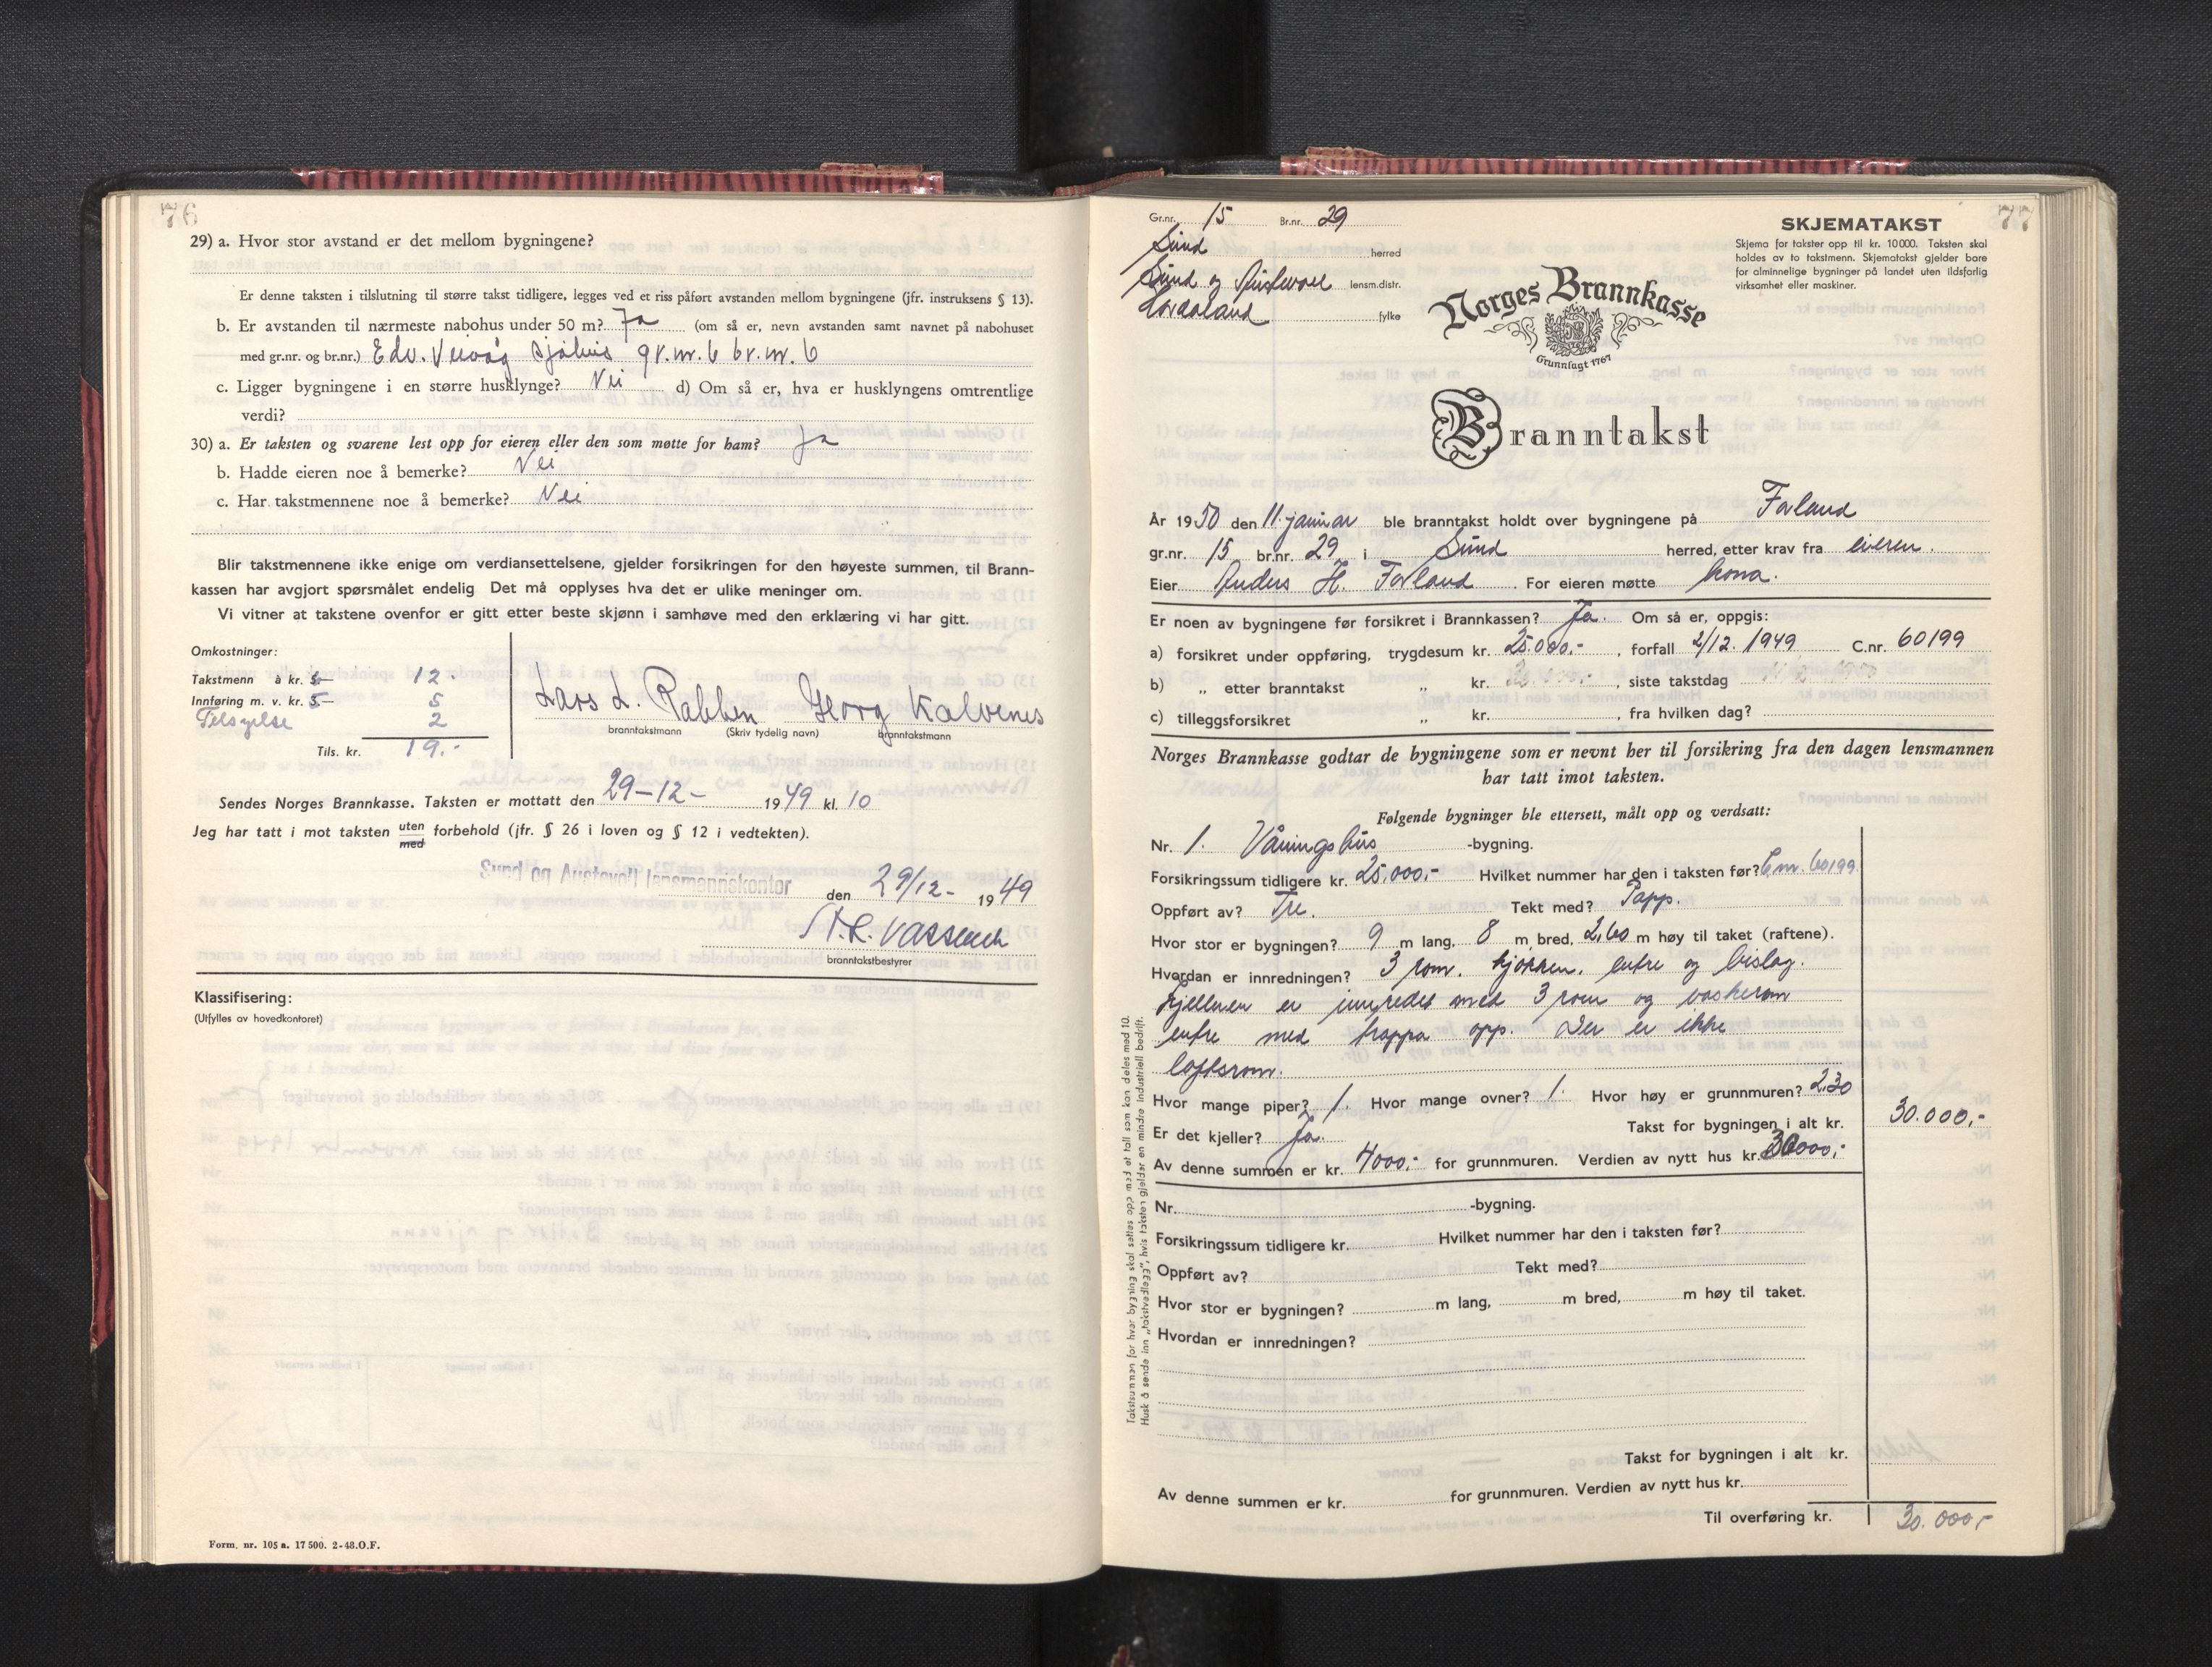 76
29) a. Hvor stor avstand er det mellom bygningene?
Er denne taksten i tilslutning til større takst tidligere, legges ved et riss påført avstanden mellom bygningene (jfr. instruksens § 13).
b. Er avstanden til nærmeste nabohus under 50 m? Ja (om så er, nevn avstanden samt navnet på nabohuset
med gr.nr. og br.nr.) Edv. Veivåg sjøhus gr.nr. 6 br.nr. 6
c. Ligger bygningene i en større husklynge? Nei d) Om så er, hva er husklyngens omtrentlige
verdi?
30) a. Er taksten og svarene lest opp for eieren eller den som møtte for ham? Ja
b. Hadde eieren noe å bemerke? Nei
c. Har takstmennene noe å bemerke? Nei
Blir takstmennene ikke enige om verdiansettelsene, gjelder forsikringen for den høyeste summen, til Brann-
kassen har avgjort spørsmålet endelig Det må opplyses hva det er ulike meninger om.
Vi vitner at takstene ovenfor er gitt etter beste skjønn i samhøve med den erklæring vi har gitt.
Omkostninger:
Takstmenn à kr. 5— 12.
Innføring m. v. kr. 5.— 5
2
Tils. kr. 19.-
Lars L. Rabben Georg Kalvenes
branntakstmann (Skriv tydelig navn) branntakstmann
Sendes Norges Brannkasse. Taksten er mottatt den 29-12- 1949 kl. 10
Jeg har tatt i mot taksten uten forbehold (jfr. § 26 i loven og § 12 i vedtekten).
med
Sund og Austevoll lensmannskontor den 29/12- 1949
branntakstbestyrer
Klassifisering:
(Utfylles av hovedkontoret)
Form. nr. 105 a. 17 500. 2-48.O.F.
77
Gr.nr. 15 Br.nr. 29
Sund herred
Sund og Austevoll lensm.distr.
Hordaland fylke
SKJEMATAKST
Skjema for takster opp til kr. 10000. Taksten skal
holdes av to takstmenn. Skjematakst gjelder bare
for alminnelige bygninger på landet uten ildsfarlig
virksomhet eller maskiner.
Norges Brannkasse
Grunnlagt 1767
Branntakst
År 1950 den 11. januar ble branntakst holdt over bygningene på Forland
gr.nr. 15 br.nr. 29 i Sund herred, etter krav fra eieren.
Eier Anders H. Forland For eieren møtte kona.
Er noen av bygningene før forsikret i Brannkassen? Ja. Om så er, oppgis:
a) forsikret under oppføring, trygdesum kr. 25.000,- , forfall 2/12. 1949 C.nr. 60199
b) „ etter branntakst „ kr. , siste takstdag
c) tilleggsforsikret „ kr. , fra hvilken dag?
Norges Brannkasse godtar de bygningene som er nevnt her til forsikring fra den dagen lensmannen
har tatt imot taksten.
Følgende bygninger ble ettersett, målt opp og verdsatt:
Nr. 1. Våningshus -bygning.
Forsikringssum tidligere kr. 25.000,- Hvilket nummer har den i taksten før? C.nr. 60199
Oppført av? Tre. Tekt med? Papp.
Hvor stor er bygningen? 9 m lang, 8 m bred, 2,60 m høy til taket (raftene).
Hvordan er innredningen? 3 rom, kjøkken, entre og bislag.
Kjelleren er innredet med 3 rom og vaskerom
entre med trappa opp. Der er ikke
loftsrom.
Hvor mange piper? 1. Hvor mange ovner? 1. Hvor høy er grunnmuren? 2,30
Er det kjeller? Ja. Takst for bygningen i alt kr. 30.000,-
Av denne summen er kr. 4000,- for grunnmuren. Verdien av nytt hus kr. 30000,-
Nr. -bygning.
Forsikringssum tidligere kr. Hvilket nummer har den i taksten før?
Oppført av? Tekt med?
Hvor stor er bygningen? m lang, m bred, m høy til taket.
Hvordan er innredningen?
Takst for bygningen i alt kr.
Av denne summen er kr. for grunnmuren. Verdien av nytt hus kr.
Til overføring kr. 30.000,-
Takstsummen for hver bygning skal settes opp med et tall som kan deles med 10.
Husk å sende inn „takstvedlegg", hvis taksten gjelder en mindre industriell bedrift.